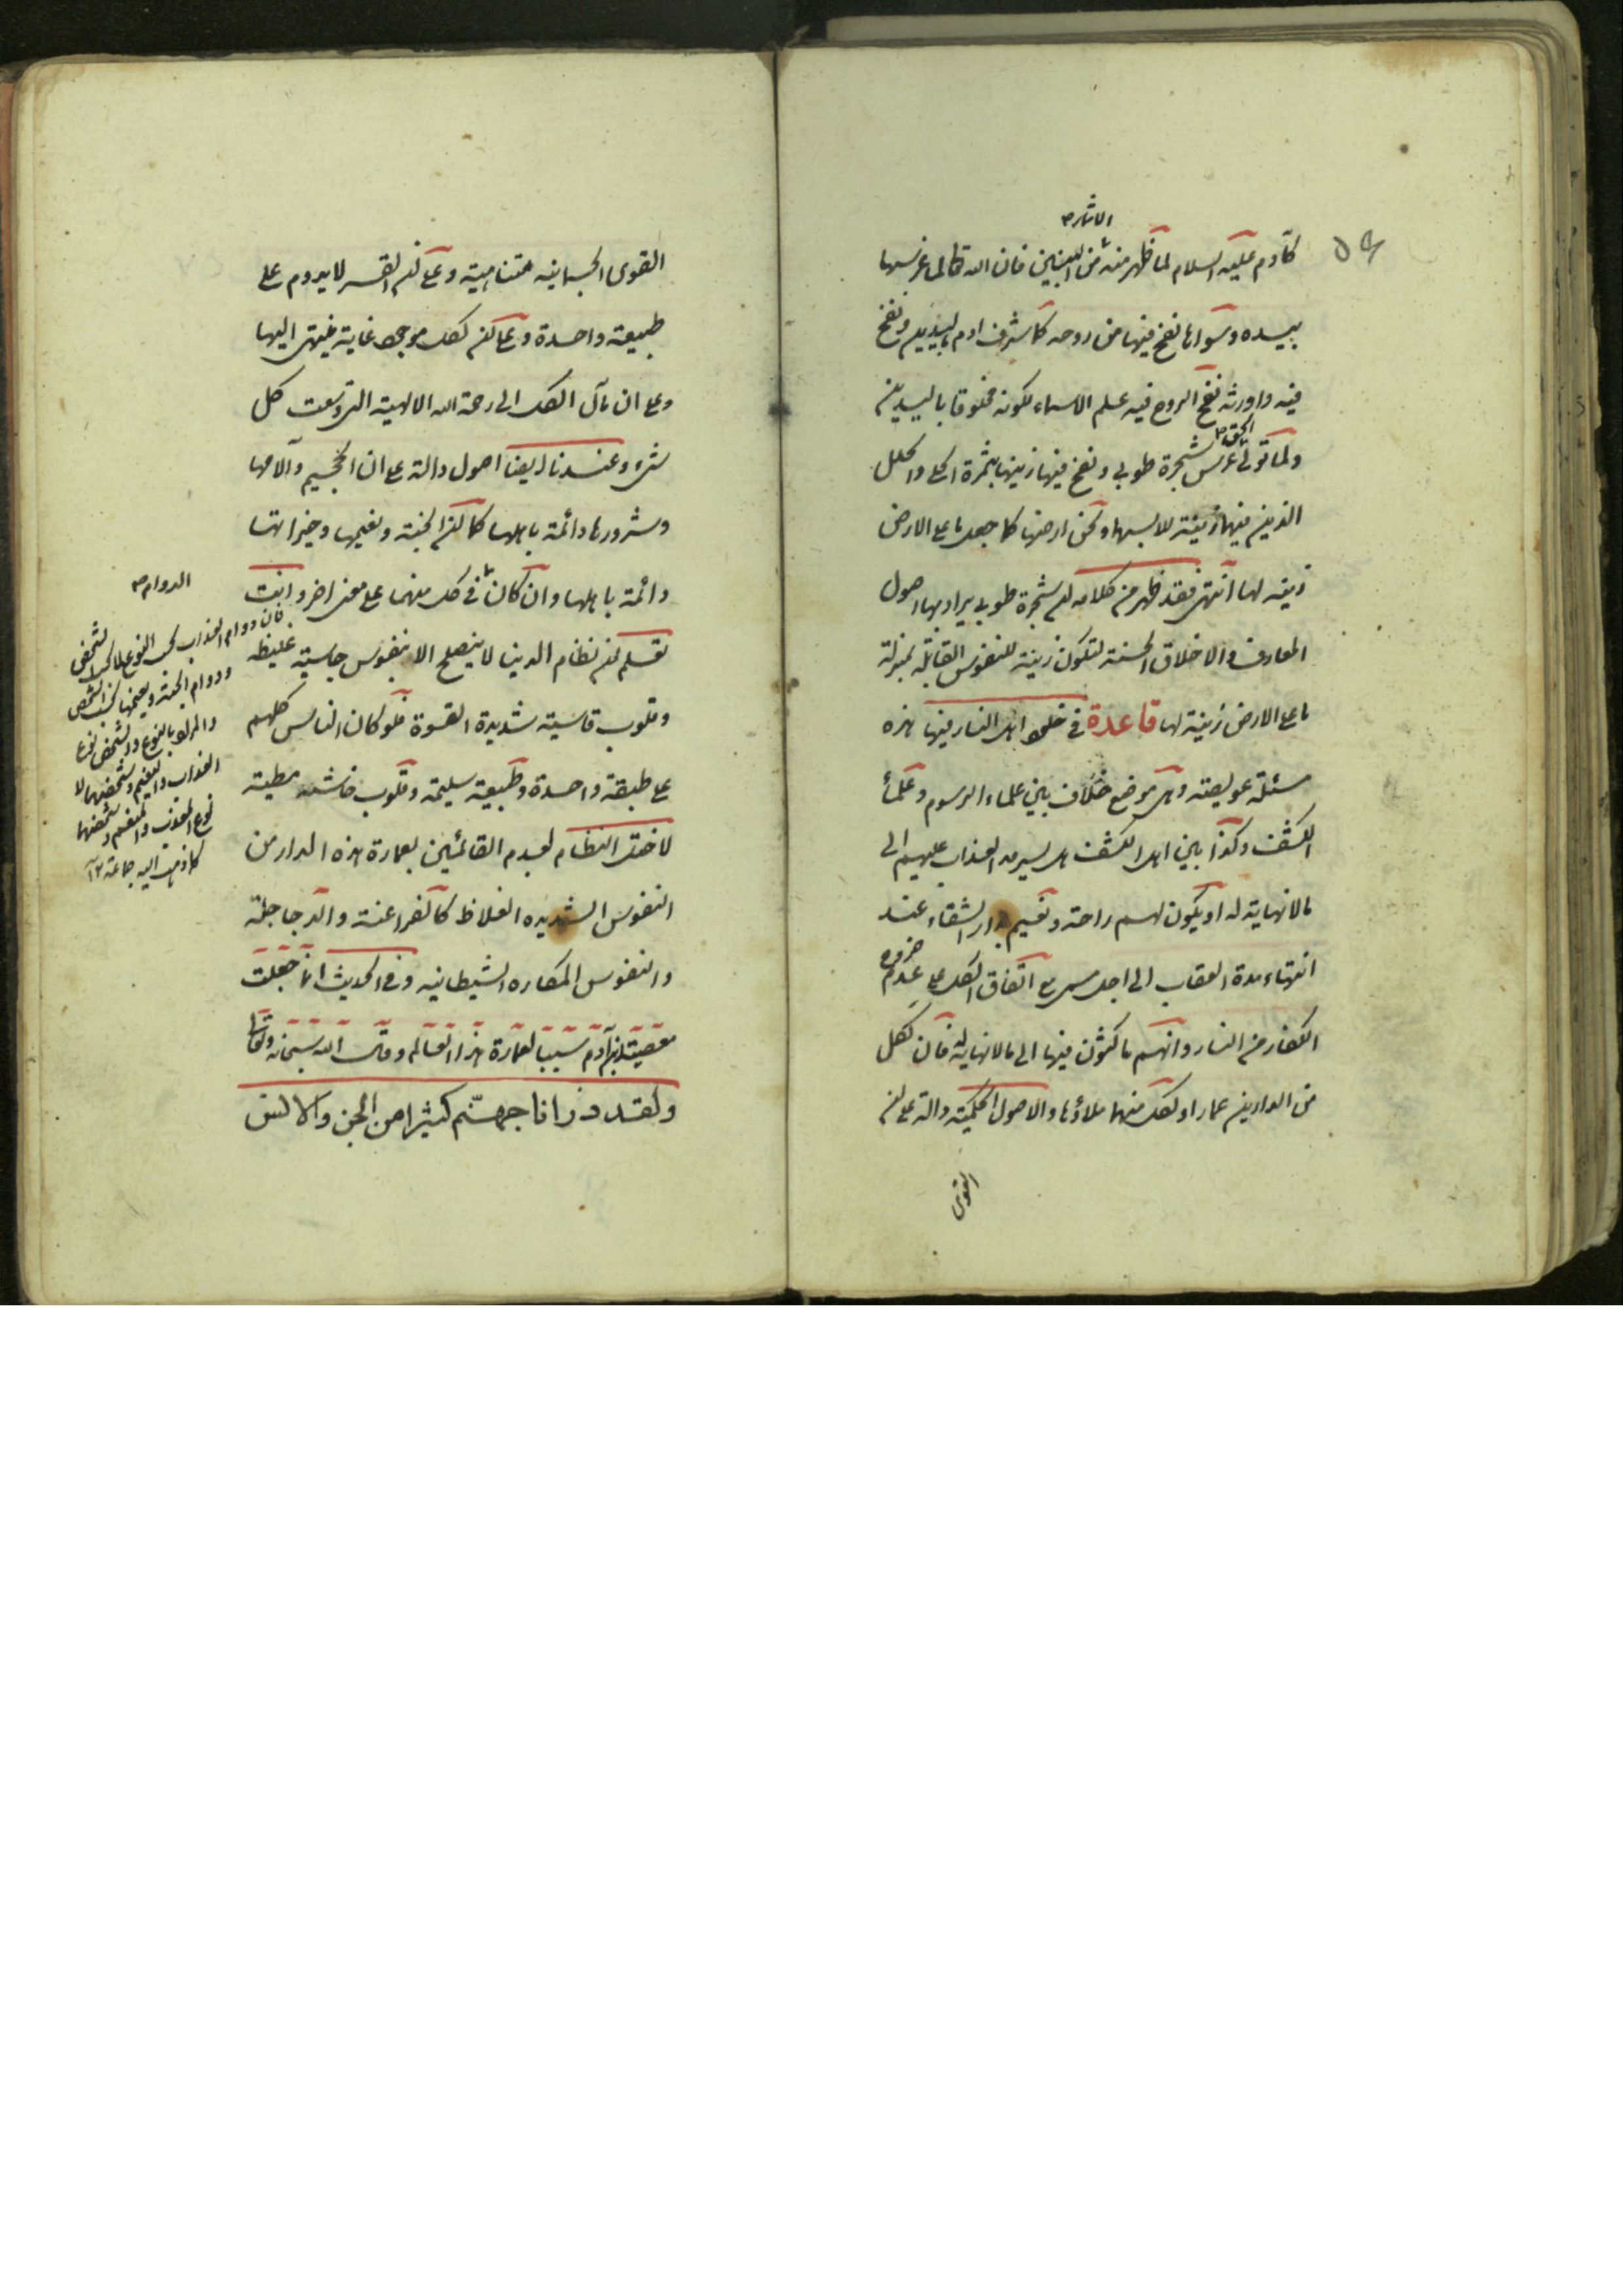 الاشارة
كآدم عليه السلام لما ظهر منه من البنين فان الله تعالى غرسها
بيده وسواها نفخ فيها من روحه كما شرف ادم باليدين ونفخ
فيه واورثه نفخ الروح فيه علم الاسماء لكونه مخلوقا باليدين
الحق
ولما تولى غرس شجرة طوبى ونفخ فيها زينها بثمرة الحلى والحلل
الذين فيها زينة للابسها ونحن ارضها كما جعل ما على الارض
زينة لها انتهى فقد ظهر من كلامه ان شجرة طوبى يراد بها اصول
المعارف والاخلاق الحسنة لتكون زينة للنفوس القابلة بمنزلة
ما على الارض زينة لها قاعدة في خلود اهل النار فيها هذه
مسئلة عويصة وهى موضع خلاف بين علماء الرسوم وعلماء
الكشف وكذا بين اهل الكشف هل يسرمد العذاب عليهم الى
ما لانهاية له او يكون لهم راحة ونعيم بدار الشقاء عند
انتهاء مدة العقاب الى اجل مسمى مع اتفاق الكل على عدم خروج
الكفار من النار وانهم ماكثون فيها الى ما لانهاية له فان لكل
من الدارين عمارا ولكل منهما ملاؤها والاصول الحكمية دالة على ان
القوى
القوى الجسمانية متناهية وعلى ان القسر لا يدوم على
طبيعة واحدة وعلى ان لكل موجود غاية ينتهى اليها
وعلى ان مآل الكل الى رحمة الله الالهية التى وسعت كل
شىء وعندنا ايضا اصول دالة على ان الجحيم وآلامها
وشرورها دائمة باهلها كما ان الجنة ونعيمها وخيراتها
دائمة باهلها وان كان فى كل منهما على معنى اخر وانت
تعلم ان نظام الدنيا لا ينصلح الا بنفوس جاسية غليظة
وقلوب قاسية شديدة القسوة فلو كان الناس كلهم
على طبقة واحدة وطبيعة سليمة وقلوب خاشعة مطيعة
لاختل النظام لعدم القائمين بعمارة هذه الدار من
النفوس الشديدة الغلاظ كالفراعنة والدجاجلة
والنفوس المكاره الشيطانيه وفى الحديث انى جعلت
معصية بنى آدم سببا لعمارة هذا العالم وقال الله سبحانه وتعالى
ولقد ذرانا جهنم كثيرا من الجن والانس
الدوام
فان دوام العذاب بحسب النوع لا بحسب الشخص
ودوام الجنة ونعيمها بحسب الشخص
والمراد بالنوع والشخص نوع
العذاب والنعيم وشخصهما لا
نوع المعذب والمنعم وشخصهما
كما ذهب اليه جماعة